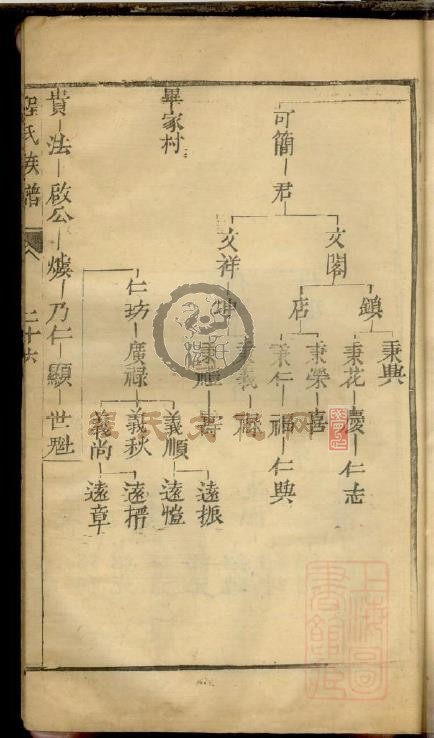 可簡 君
文閣
鎮
秉典
秉花 慶 仁志
店
秉榮 喜
秉仁 福 仁典
文祥 坤
秉義 祿
秉禮 壽
畢家村
仁坊 廣祿
義順
遠振
遠愷
義秋
遠楷
義尚 遠章
貴 法 啟公 爌 乃仁 顯 世魁
程氏族譜
二十六
上海圖書館藏